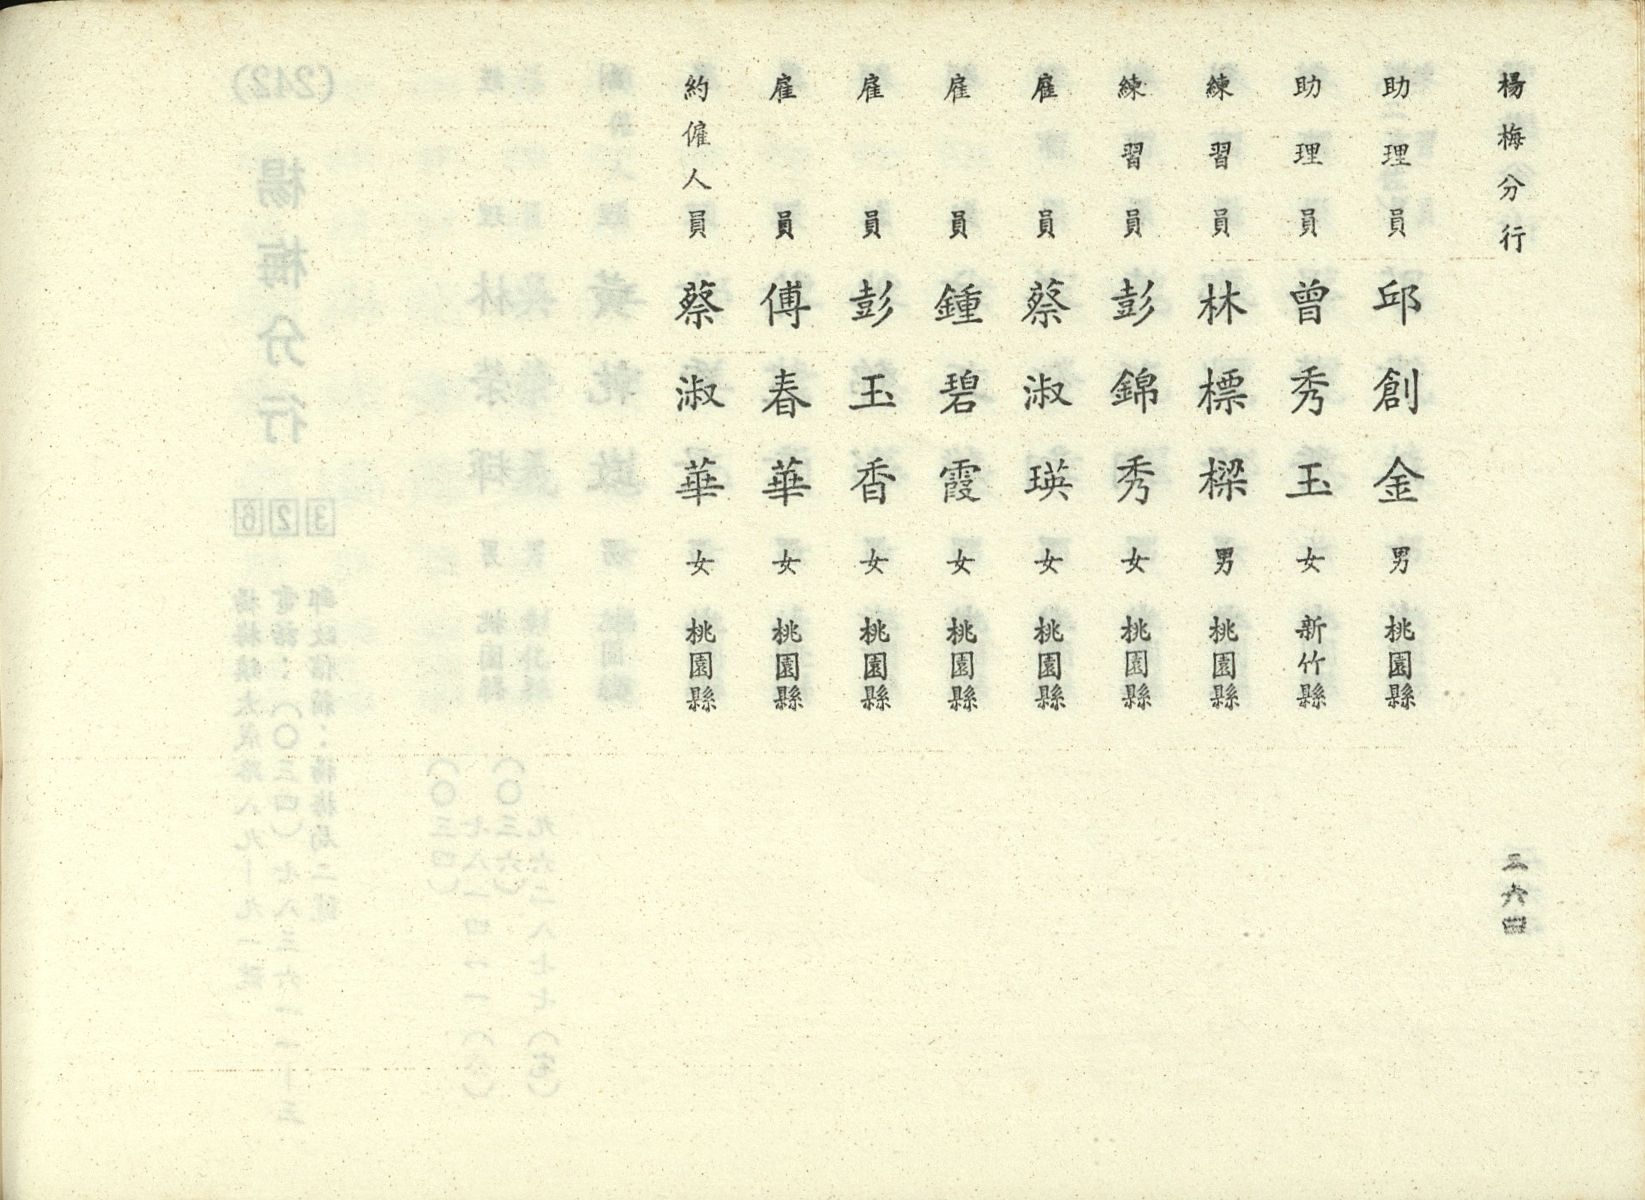 楊梅分行
三六四
助理員 邱創金 男 桃園縣
助理員 曾秀玉 女 新竹縣
練習員 林標樑 男 桃園縣
練習員 彭錦秀 女 桃園縣
雇員 蔡淑瑛 女 桃園縣
雇員 鍾碧霞 女 桃園縣
雇員 彭玉香 女 桃園縣
雇員 傅春華 女 桃園縣
約僱人員 蔡淑華 女 桃園縣